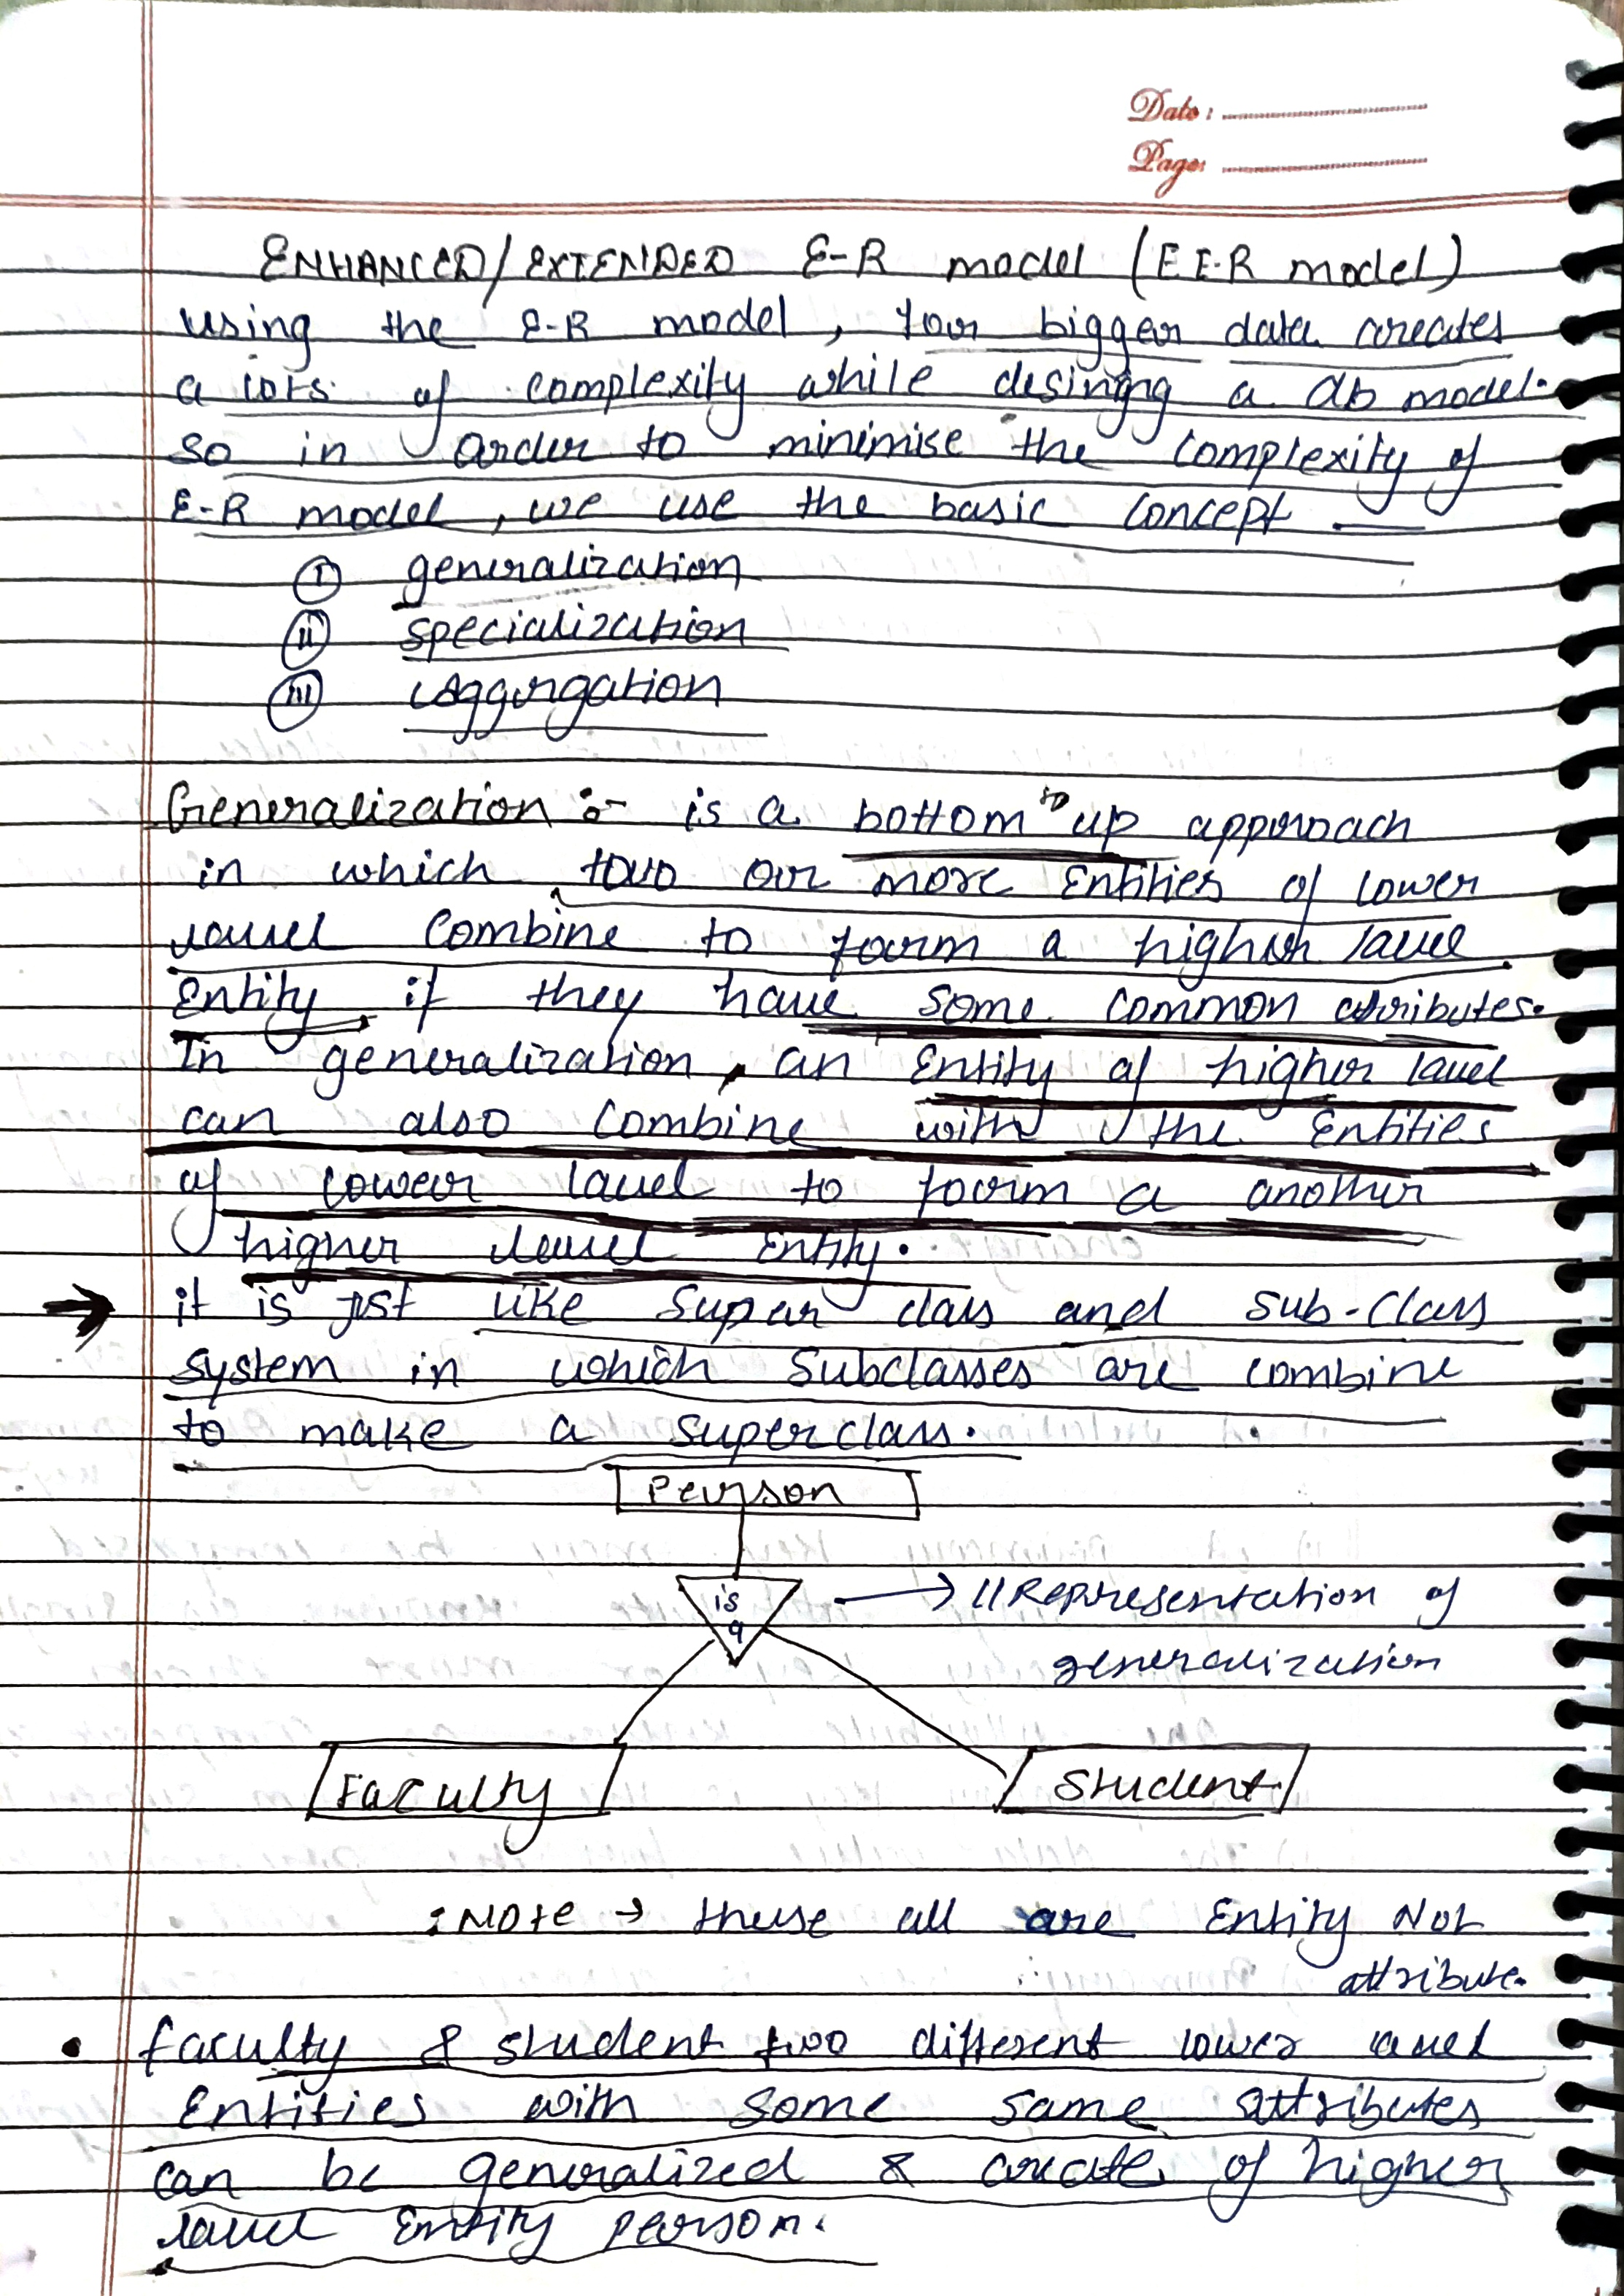 Date :
Page:
ENHANCED/EXTENDED E-R model (E E-R model)
using the E-R model, for bigger data creates
a lots of complexity while desining a db model.
so in order to minimise the complexity of
E-R model, we use the basic concept —
(i) generalization
(ii) specialization
(iii) aggurgation
Generalization :- is a bottom to up approach
in which two or more Entities of lower
level combine to form a higher level
Entity if they have some common attributes.
In generalization, an Entity of higher level
can also combine with the Entities
of lower level to form a another
higher level Entity.
→ it is jost like Super class and sub-class
system in which subclasses are combine
to make a superclass.
Person
is
a
→ //Representation of
generalization
Faculty
Student
: Note → these all are Entity Not
attribute.
• faculty & student two different lower level
Entities with some same attributes
can be generalized & create of higher
level Entity person.